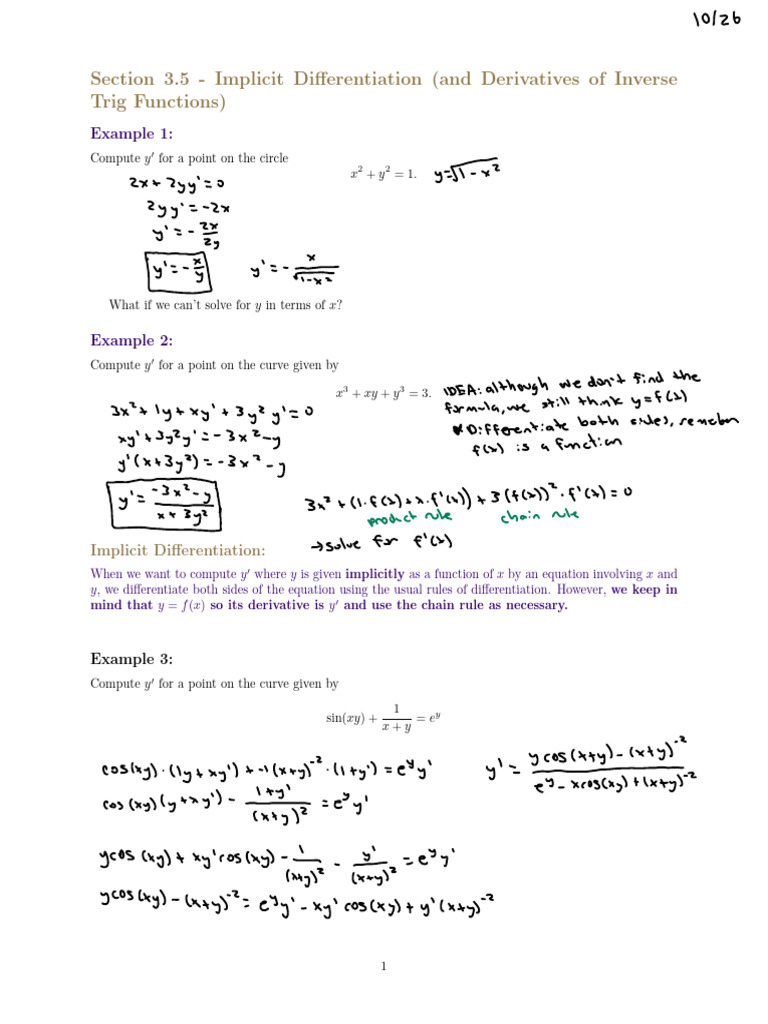 10/26
Section 3.5 - Implicit Differentiation (and Derivatives of Inverse
Trig Functions)
Example 1:
Compute y′ for a point on the circle
x² + y² = 1.
y=√1-x²
2x + 2yy' = 0
2yy' = -2x
y' = - 2x/2y
y' = - x/y
y' = - x/√1-x²
What if we can't solve for y in terms of x?
Example 2:
Compute y′ for a point on the curve given by
x³ + xy + y³ = 3.
IDEA: although we don't find the
formula, we still think y=f(x)
*Differentiate both sides, remember
f(x) is a function
3x² + 1y + xy' + 3y² y' = 0
xy' + 3y²y' = -3x² - y
y'(x+3y²) = -3x² - y
y' = -3x²-y/x+3y²
3x² + (1·f(x) + x·f'(x)) + 3(f(x))² · f'(x) = 0
product rule
chain rule
→solve for f'(x)
Implicit Differentiation:
When we want to compute y′ where y is given implicitly as a function of x by an equation involving x and
y, we differentiate both sides of the equation using the usual rules of differentiation. However, we keep in
mind that y = f(x) so its derivative is y′ and use the chain rule as necessary.
Example 3:
Compute y′ for a point on the curve given by
sin(xy) + 1/x + y = eʸ
cos(xy)·(1y + xy') + -1(x+y)⁻²·(1+y') = eʸy'
cos(xy)(y+xy') - 1+y'/(x+y)² = eʸy'
ycos(xy) + xy'cos(xy) - 1/(x+y)² - y'/(x+y)² = eʸy'
ycos(xy) - (x+y)⁻² = eʸy' - xy'cos(xy) + y'(x+y)⁻²
y' = ycos(x+y) - (x+y)⁻²/eʸ - xcos(xy) + (x+y)⁻²
1